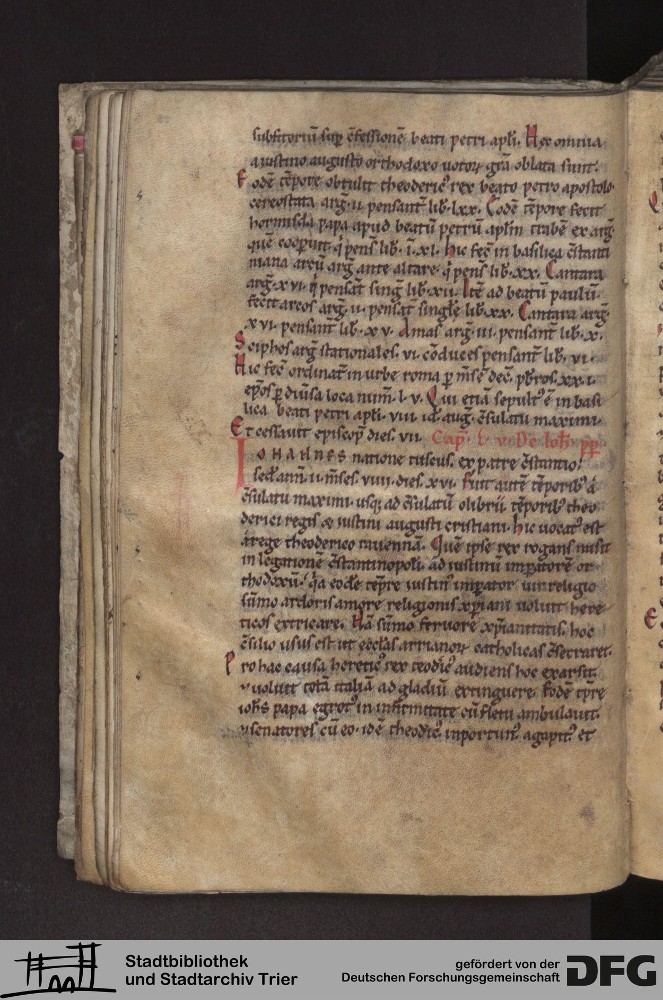 subfitoriũ sup̃ cõfessionẽ beati petri apl̃i. Hęc omnia
a iustino augusto orthodoxo uotoꝝ grã oblata sunt.
Eodẽ tẽpore obtulit theodericꝰ rex beato petro apostolo
cereostata arg̃. ii. pensant̃ lib̃. lxx. Eodẽ tẽpore fecit
hormisda papa apud beatũ petrũ aplm̃ trabẽ ex arg̃
quẽ cooperuit. q̃ pens̃ lib̃. ĩ. xl. Hic fec̃ in basilica cõstanti
niana arcũ arg̃ ante altare. q̃ pens̃ lib̃. xx. Cantara
arg̃. xvi. q̃ pensãt sing̃ lib̃. xii. Itẽ ad beatũ paulũ.
fecit arcos arg̃. ii. pensãt singl̃e lib̃. xx. Cantara arg̃.
xvi. pensant̃ lib̃. xv. Amas arg̃. iii. pensant̃ lib̃. x.
Sciphos arg̃ stationales. vi. cõ duces pensant̃ lib̃. vi.
Hic fec̃ ordinat̃ in urbe roma ꝑ ms̃e dec̃. pb̃ros. xx. i.
ep̃os ꝑ diuisa loca num̃. lv. Qui etiã sepultꝰ ẽ in basi
lica beati petri apl̃i. viii. id̃. aug̃. cõsulatu maximi.
Et cessauit episcop̃ dies. vii. Cap̃. Lv. De Ioh̃. pp̃
IOHANNES natione tuscus. ex patre cõstantio.
sed̃. ann̄. ii. ms̃es. viiii. dies. xvi. Fuit autẽ tẽporibꝰ á
cõsulatu maximi. usq; ad cõsulatũ olibrii tẽporibꝰ theo
derici regis & iustini augusti cristiani. Hic uocatꝰ est
á rege theoderico rauennã. Quẽ ipse rex rogans misit
in legationẽ cõstantinopoli. ad iustinũ impatorẽ or
thodoxũ. q̃a eodẽ tẽpre iustinꝰ impator uir religio
sũmo ardoris amore religionis xp̃iani uoluit here
ticos extricare. Nã sũmo feruore xp̃ianitatis. hoc
cõsilio usus est ut eccl̃as arrianoꝝ catholicas cõsecraret.
Pro hac causa hereticꝰ rex teodicꝰ audiens hoc exarsit.
& uoluit totã italiã ad gladiũ extinguere. Eodẽ tp̃re
ioh̃s papa egrotꝰ in infirmitate cũ fletu ambulauit.
& senatores cũ eo. idẽ theodicꝰ. inportunꝰ. agapitꝰ et
Stadtbibliothek
und Stadtarchiv Trier
gefördert von der
Deutschen Forschungsgemeinschaft
DFG